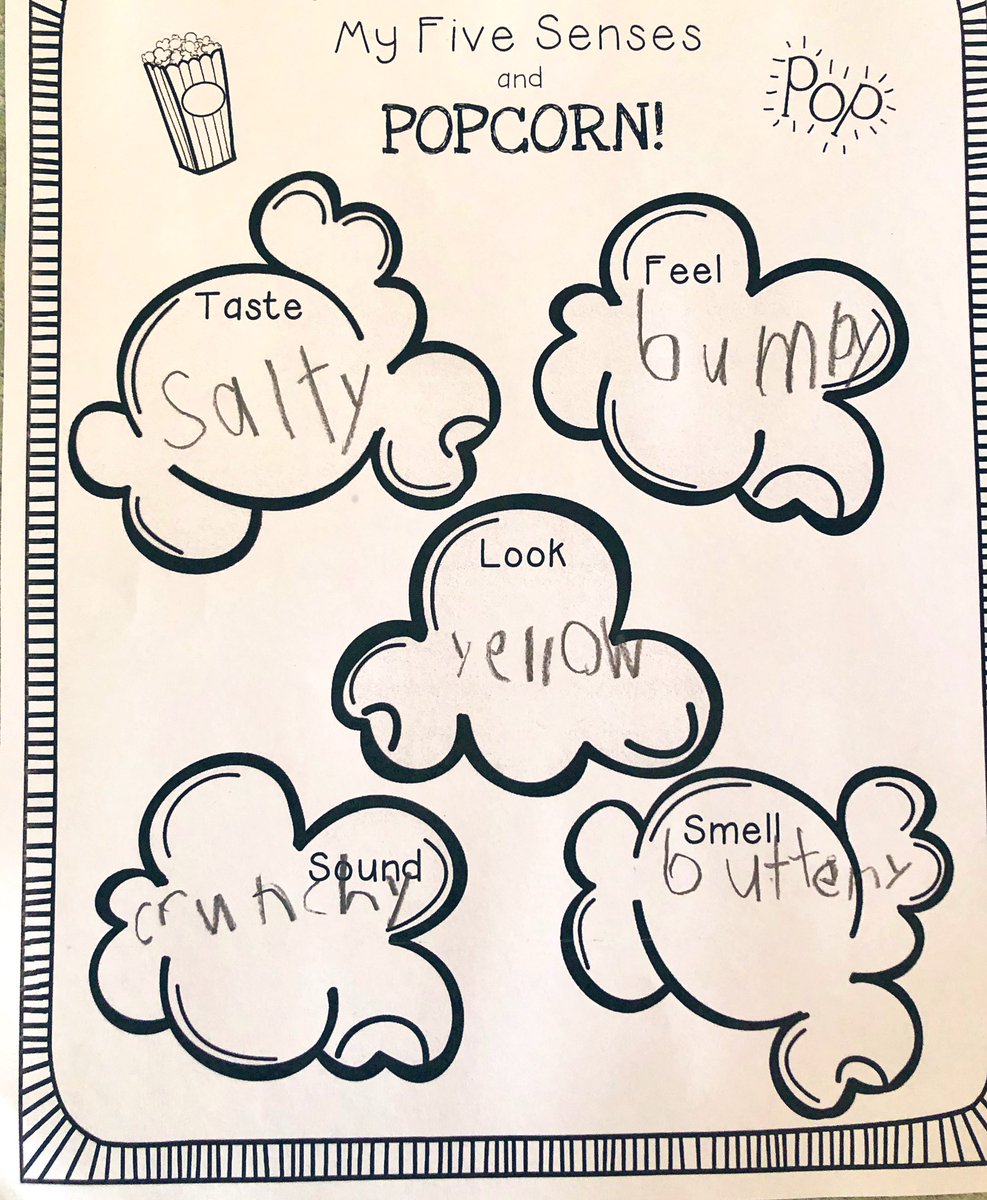 My Five Senses
and
POPCORN!
Pop
Taste
salty
Feel
bumpy
Look
yellow
Sound
crunchy
Smell
buttery